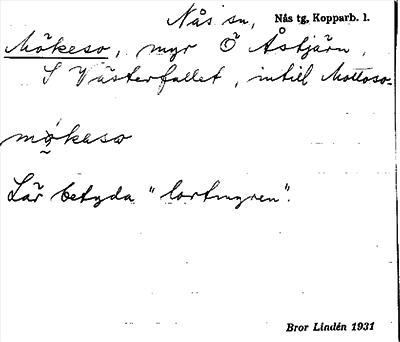 Nås sn, Nås tg, Kopparb. l.
Mökeso, myr Ö Åstjärn,
S Västerfallet, intill Mottoso-
mø̀kesω
Lär betyda "lortmyren".
Bror Lindén 1931